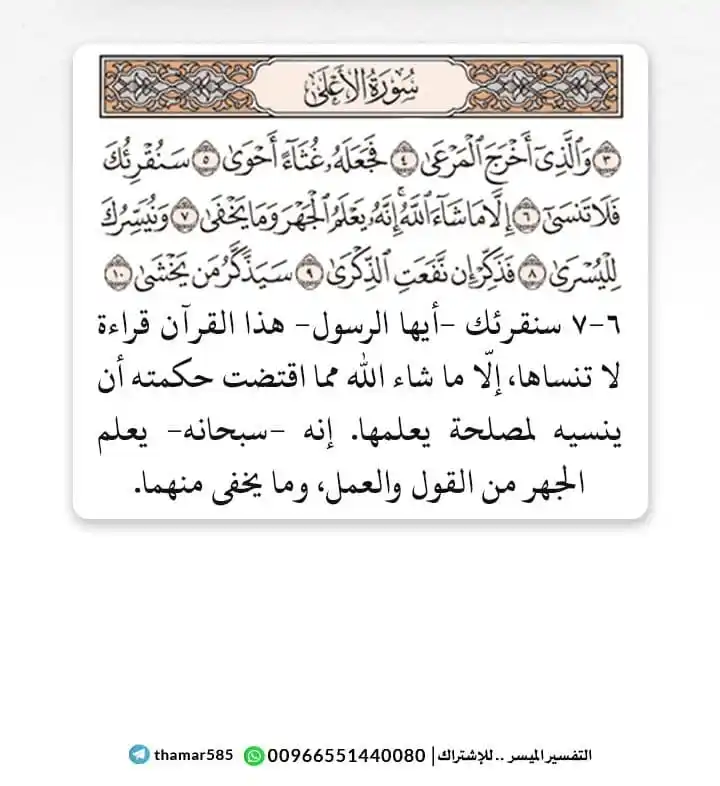 سُورَةُ الأَعْلَى
٣ وَالَّذِي أَخْرَجَ الْمَرْعَى ٤ فَجَعَلَهُ غُثَاءً أَحْوَى ٥ سَنُقْرِئُكَ
فَلَا تَنسَى ٦ إِلَّا مَا شَاءَ اللَّهُ إِنَّهُ يَعْلَمُ الْجَهْرَ وَمَا يَخْفَى ٧ وَنُيَسِّرُكَ
لِلْيُسْرَى ٨ فَذَكِّرْ إِن نَّفَعَتِ الذِّكْرَى ٩ سَيَذَّكَّرُ مَن يَخْشَى ١٠
٦-٧ سنقرئك -أيها الرسول- هذا القرآن قراءة
لا تنساها، إلّا ما شاء الله مما اقتضت حكمته أن
ينسيه لمصلحة يعلمها. إنه -سبحانه- يعلم
الجهر من القول والعمل، وما يخفى منهما.
التفسير الميسر .. للإشتراك | 00966551440080 thamar585